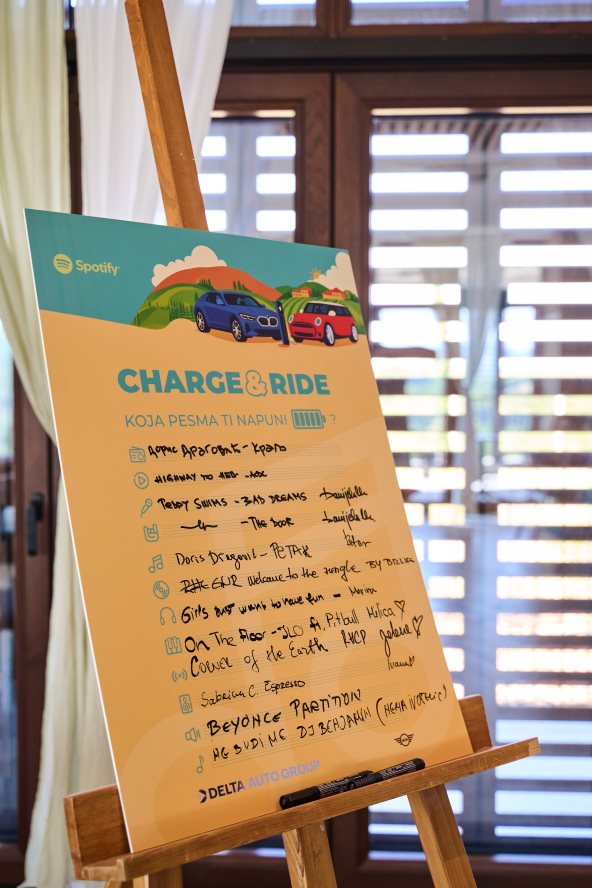 Spotify
CHARGE & RIDE
KOJA PESMA TI NAPUNI ?
Дорис Драговић - Краљ
HIGHWAY TO HELL - ADC
TEDDY SWIMS - BAD DREAMS
- THE DOOR
Doris Dragović - PETAK
GNR Welcome to the jungle BY
Girls just want to have fun - Marina
On The Floor - JLO ft. Pitbull Milica ♡
Corner of the Earth RHCP Jelena ♡
Ivana ♡
Sabrina C. Espresso
BEYONCE PARTITION
NE BUDI ME DJ BENJAMIN
MINI
DELTA AUTO GROUP